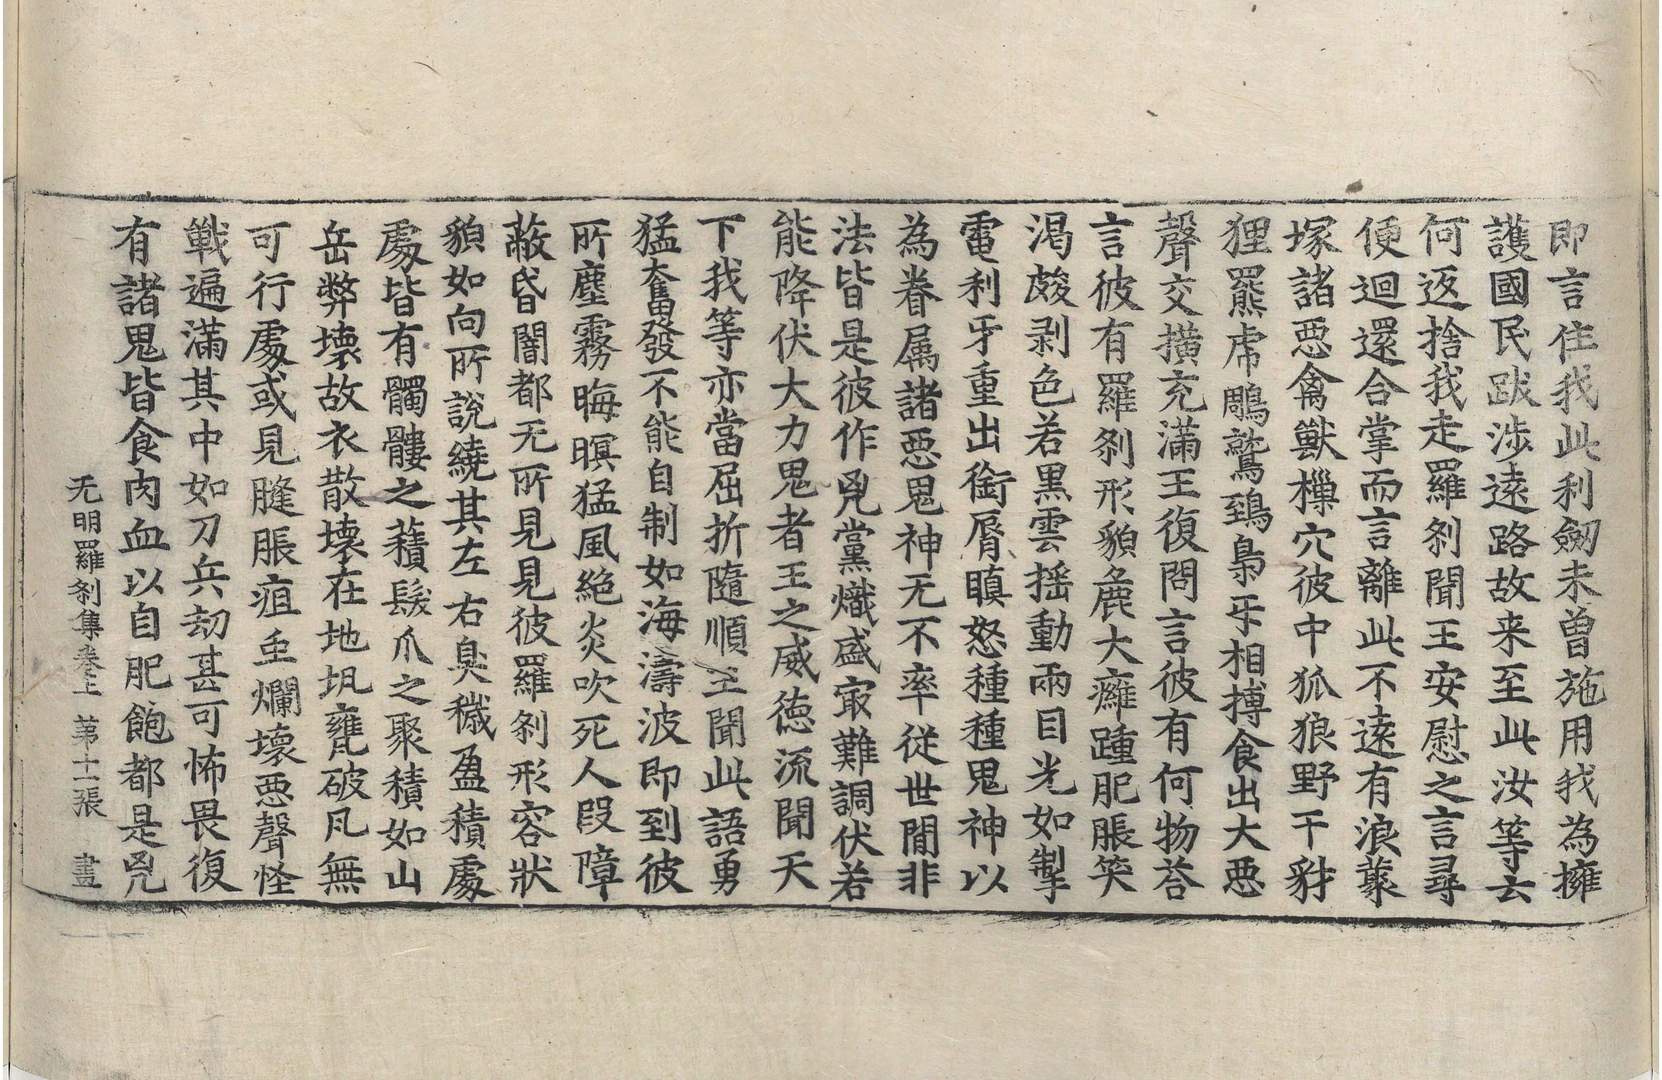 即言住我此利劒未曾施用我為擁
護國民跋涉遠路故来至此汝等去
何返捨我走羅刹聞王安慰之言尋
便迴還合掌而言離此不遠有浪藂
塚諸惡禽獸樔穴彼中狐狼野干豺
狸羆虎鵰鷲鵄梟牙相搏食出大惡
聲交撗充滿王復問言彼有何物荅
言彼有羅刹形貌麁大癰踵肥脹𥬇
渴皴剥色若黒雲揺動兩目光如掣
電利牙重出銜脣瞋怒種種鬼神以
為眷屬諸惡鬼神无不率従世間非
法皆是彼作兇黨熾盛㝡難調伏若
能降伏大力鬼者王之威徳流聞天
下我等亦當屈折隨順王聞此語勇
猛奮發不能自制如海濤波即到彼
所塵霧晦暝猛風絶炎吹死人段障
蔽昏闇都无所見見彼羅刹形容狀
貌如向所說繞其左右臭穢盈積處
處皆有髑髏之積髮爪之聚積如山
岳弊壞故衣散壞在地坑甕破瓦無
可行處或見膖脹疽虫爛壞惡聲怪
戰遍滿其中如刀兵劫甚可怖畏復
有諸鬼皆食肉血以自肥飽都是兇
无明羅刹集卷上 苐十二張 畫